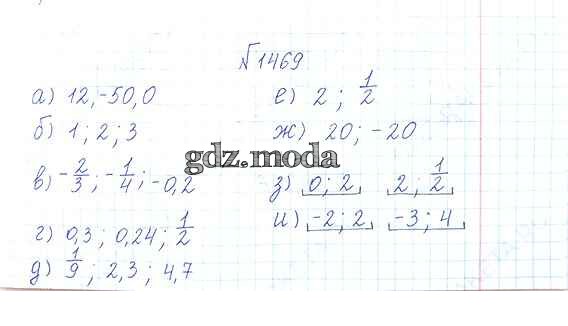 №1469
а) 12, -50, 0
б) 1; 2; 3
в) -2/3; -1/4; -0,2
г) 0,3; 0,24; 1/2
д) 1/9; 2,3; 4,7
е) 2; 1/2
ж) 20; -20
з) 0; 2 2; 1/2
и) -2; 2 -3; 4
gdz.moda